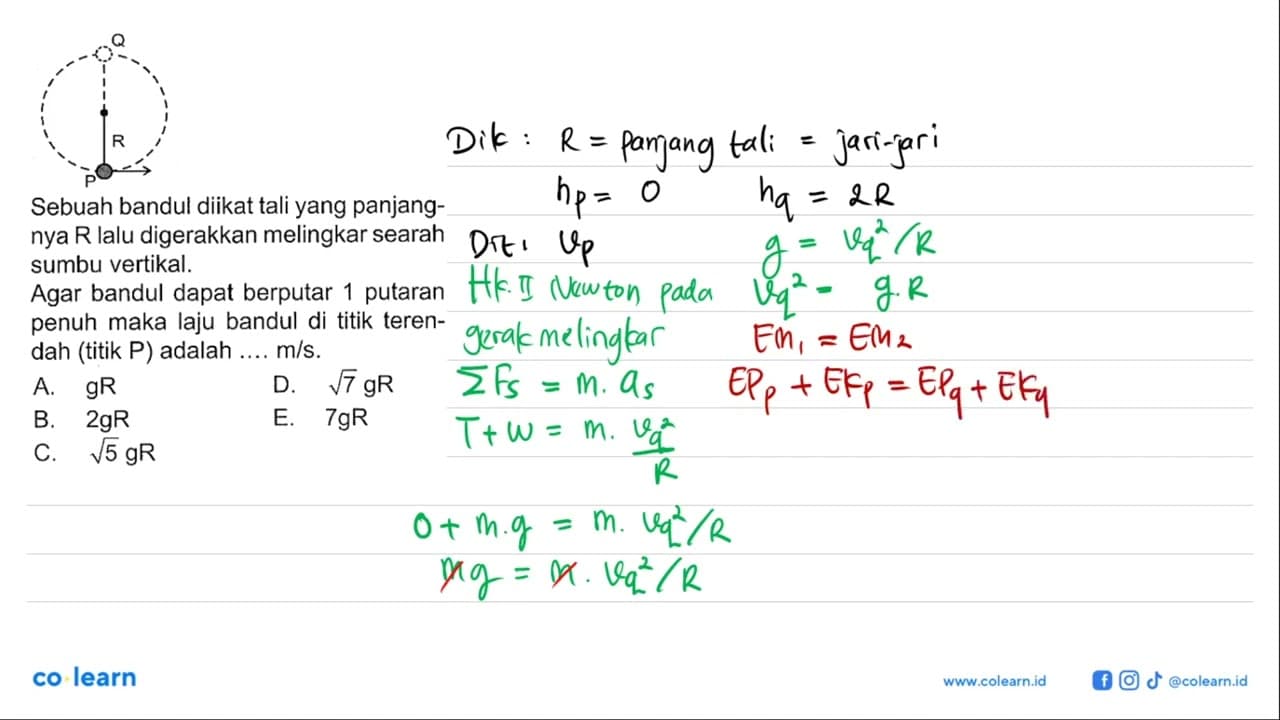 Q
R
P
Sebuah bandul diikat tali yang panjang-
nya R lalu digerakkan melingkar searah
sumbu vertikal.
Agar bandul dapat berputar 1 putaran
penuh maka laju bandul di titik teren-
dah (titik P) adalah .... m/s.
A. gR
B. 2gR
C. √5 gR
D. √7 gR
E. 7gR
Dik : R = panjang tali = jari-jari
hp = 0 hq = 2R
Dit : vp
Hk. II Newton pada
gerak melingkar
ΣFs = m. as
T + w = m. vq²/R
0 + m.g = m. vq²/R
mg = m. vq²/R
g = vq²/R
vq² = g.R
Em₁ = Em₂
EPp + EKp = EPq + EKq
co·learn
www.colearn.id
@colearn.id